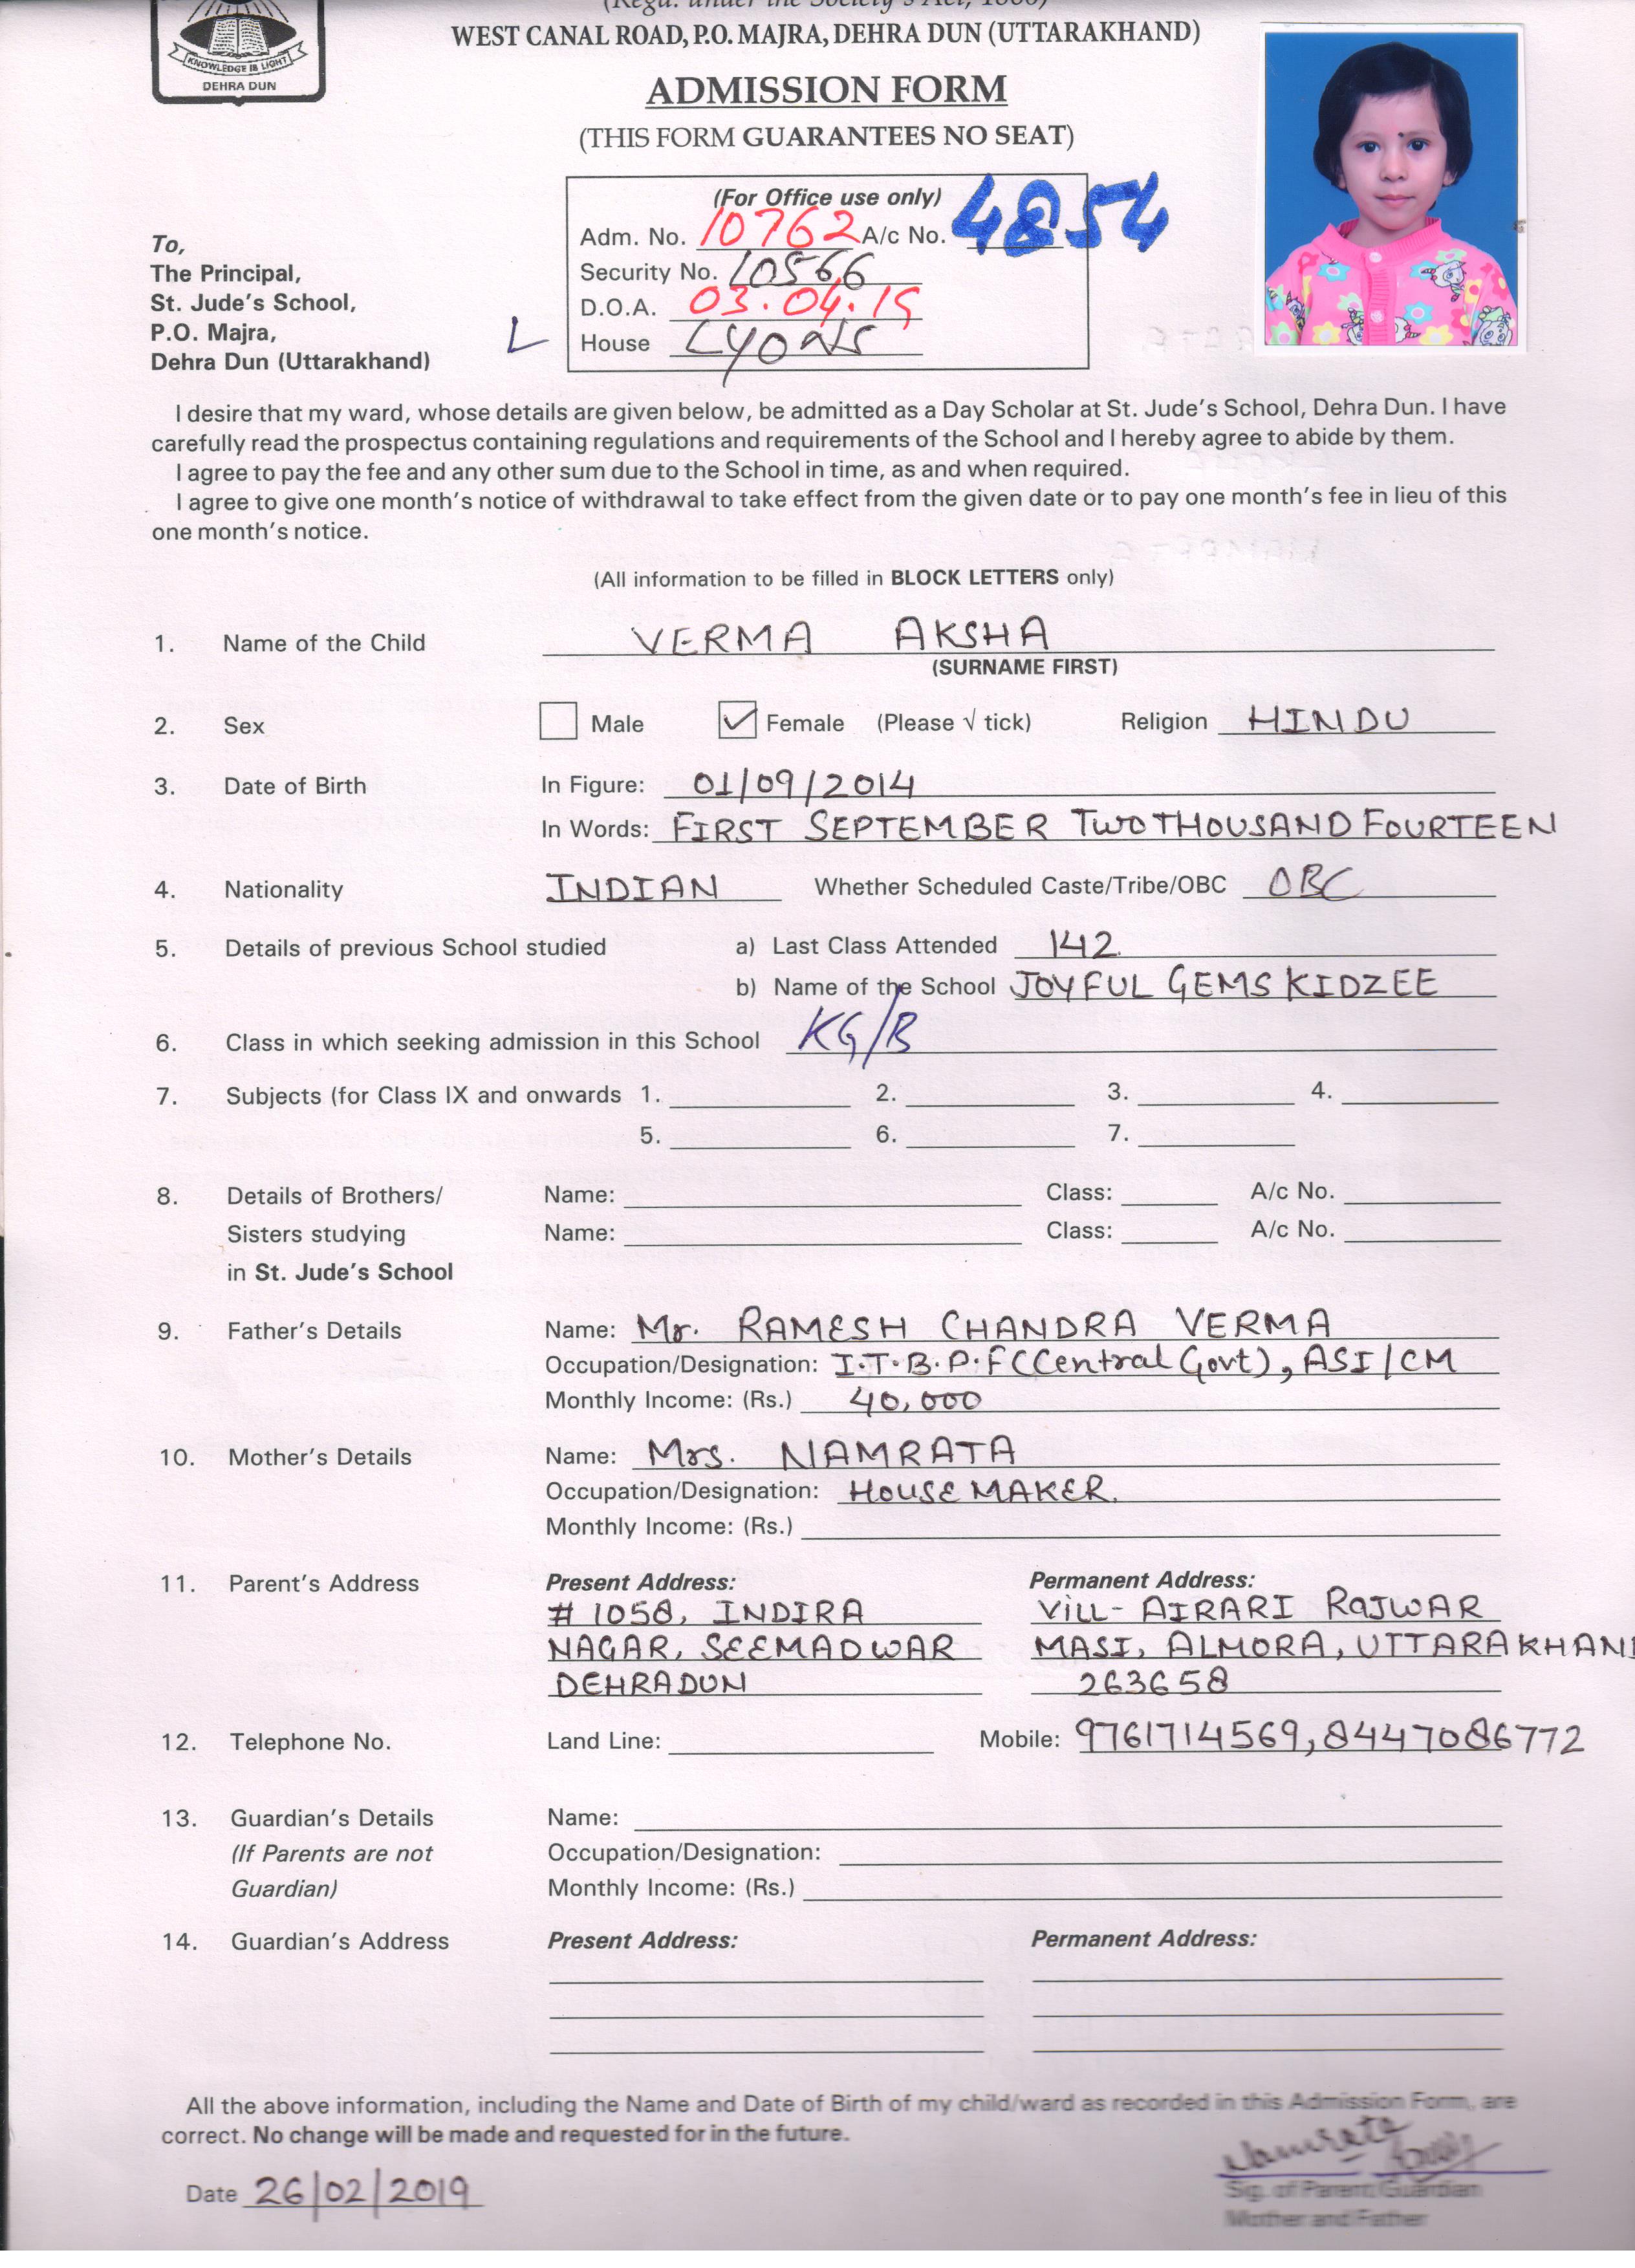 (Regd. under the Society's Act, 1860)
WEST CANAL ROAD, P.O. MAJRA, DEHRA DUN (UTTARAKHAND)
KNOWLEDGE IS LIGHT
DEHRA DUN
ADMISSION FORM
(THIS FORM GUARANTEES NO SEAT)
(For Office use only)
Adm. No. 10762 A/c No. 4854
Security No. 10566
D.O.A. 03.04.19
L House LYONS
To,
The Principal,
St. Jude's School,
P.O. Majra,
Dehra Dun (Uttarakhand)
I desire that my ward, whose details are given below, be admitted as a Day Scholar at St. Jude's School, Dehra Dun. I have
carefully read the prospectus containing regulations and requirements of the School and I hereby agree to abide by them.
I agree to pay the fee and any other sum due to the School in time, as and when required.
I agree to give one month's notice of withdrawal to take effect from the given date or to pay one month's fee in lieu of this
one month's notice.
(All information to be filled in BLOCK LETTERS only)
1. Name of the Child VERMA AKSHA
(SURNAME FIRST)
2. Sex Male ✓ Female (Please √ tick) Religion HINDU
3. Date of Birth In Figure: 01/09/2014
In Words: FIRST SEPTEMBER TWO THOUSAND FOURTEEN
4. Nationality INDIAN Whether Scheduled Caste/Tribe/OBC OBC
5. Details of previous School studied a) Last Class Attended 142
b) Name of the School JOYFUL GEMS KIDZEE
6. Class in which seeking admission in this School KG/B
7. Subjects (for Class IX and onwards 1. 2. 3. 4.
5. 6. 7.
8. Details of Brothers/ Name: Class: A/c No.
Sisters studying Name: Class: A/c No.
in St. Jude's School
9. Father's Details Name: Mr. RAMESH CHANDRA VERMA
Occupation/Designation: I.T.B.P.F (Central Govt), ASI/CM
Monthly Income: (Rs.) 40,000
10. Mother's Details Name: Mrs. NAMRATA
Occupation/Designation: HOUSE MAKER.
Monthly Income: (Rs.)
11. Parent's Address Present Address: Permanent Address:
# 1058, INDIRA VILL- AIRARI RAJWAR
NAGAR, SEEMADWAR MASI, ALMORA, UTTARAKHAND
DEHRADUN 263658
12. Telephone No. Land Line: Mobile: 9761714569, 8447086772
13. Guardian's Details Name:
(If Parents are not Occupation/Designation:
Guardian) Monthly Income: (Rs.)
14. Guardian's Address Present Address: Permanent Address:
All the above information, including the Name and Date of Birth of my child/ward as recorded in this Admission Form, are
correct. No change will be made and requested for in the future.
Namrata
Date 26/02/2019 Sig. of Parent/Guardian
Mother and Father